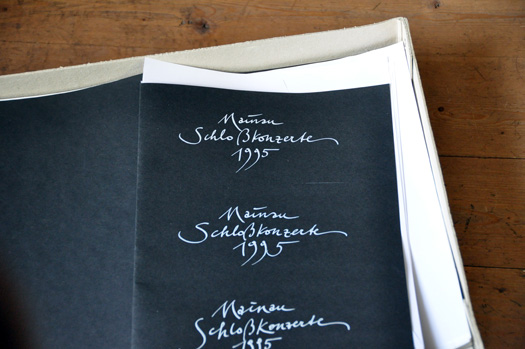 Mainau
Schloßkonzerte
1995
Mainau
Schloßkonzerte
1995
Mainau
Schloßkonzerte
1995